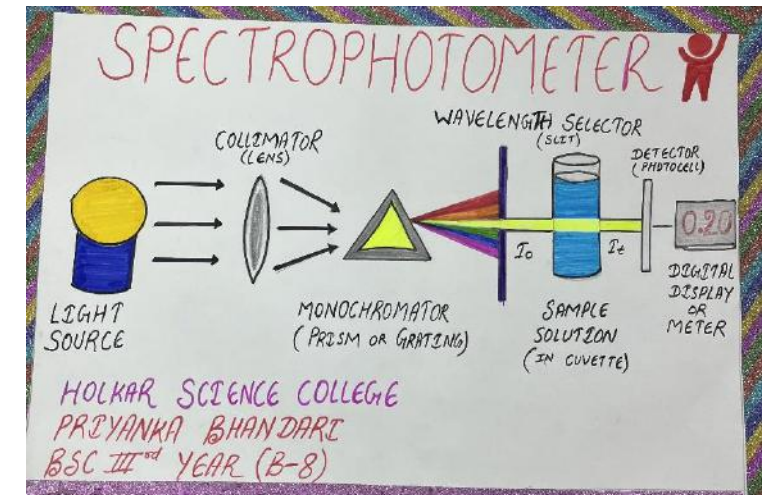 SPECTROPHOTOMETER
WAVELENGTH SELECTOR
(SLIT)
COLLIMATOR
(LENS)
DETECTOR
(PHOTOCELL)
0.20
I₀
Iₜ
LIGHT
SOURCE
MONOCHROMATOR
(PRISM OR GRATING)
SAMPLE
SOLUTION
(IN CUVETTE)
DIGITAL
DISPLAY
OR
METER
HOLKAR SCIENCE COLLEGE
PRIYANKA BHANDARI
BSC IIIrd YEAR (B-8)